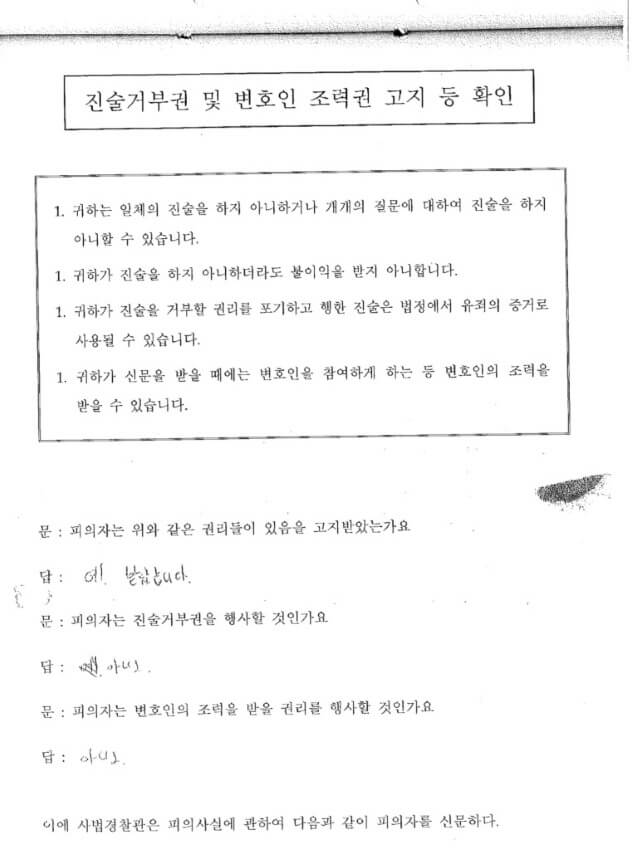 진술거부권 및 변호인 조력권 고지 등 확인
1. 귀하는 일체의 진술을 하지 아니하거나 개개의 질문에 대하여 진술을 하지
아니할 수 있습니다.
1. 귀하가 진술을 하지 아니하더라도 불이익을 받지 아니합니다.
1. 귀하가 진술을 거부할 권리를 포기하고 행한 진술은 법정에서 유죄의 증거로
사용될 수 있습니다.
1. 귀하가 신문을 받을 때에는 변호인을 참여하게 하는 등 변호인의 조력을
받을 수 있습니다.
문 : 피의자는 위와 같은 권리들이 있음을 고지받았는가요
답 : 예.
문 : 피의자는 진술거부권을 행사할 것인가요
답 : 아니오.
문 : 피의자는 변호인의 조력을 받을 권리를 행사할 것인가요
답 : 아니오.
이에 사법경찰관은 피의사실에 관하여 다음과 같이 피의자를 신문하다.